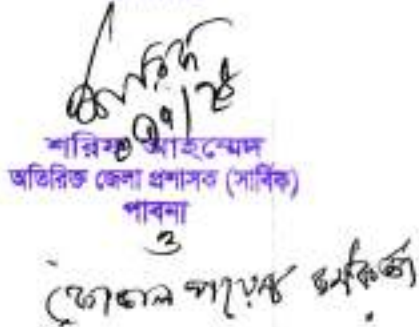 শরিফ আহম্মেদ
অতিরিক্ত জেলা প্রশাসক (সার্বিক)
পাবনা
ও
ফোকাল পয়েন্ট কর্মকর্তা